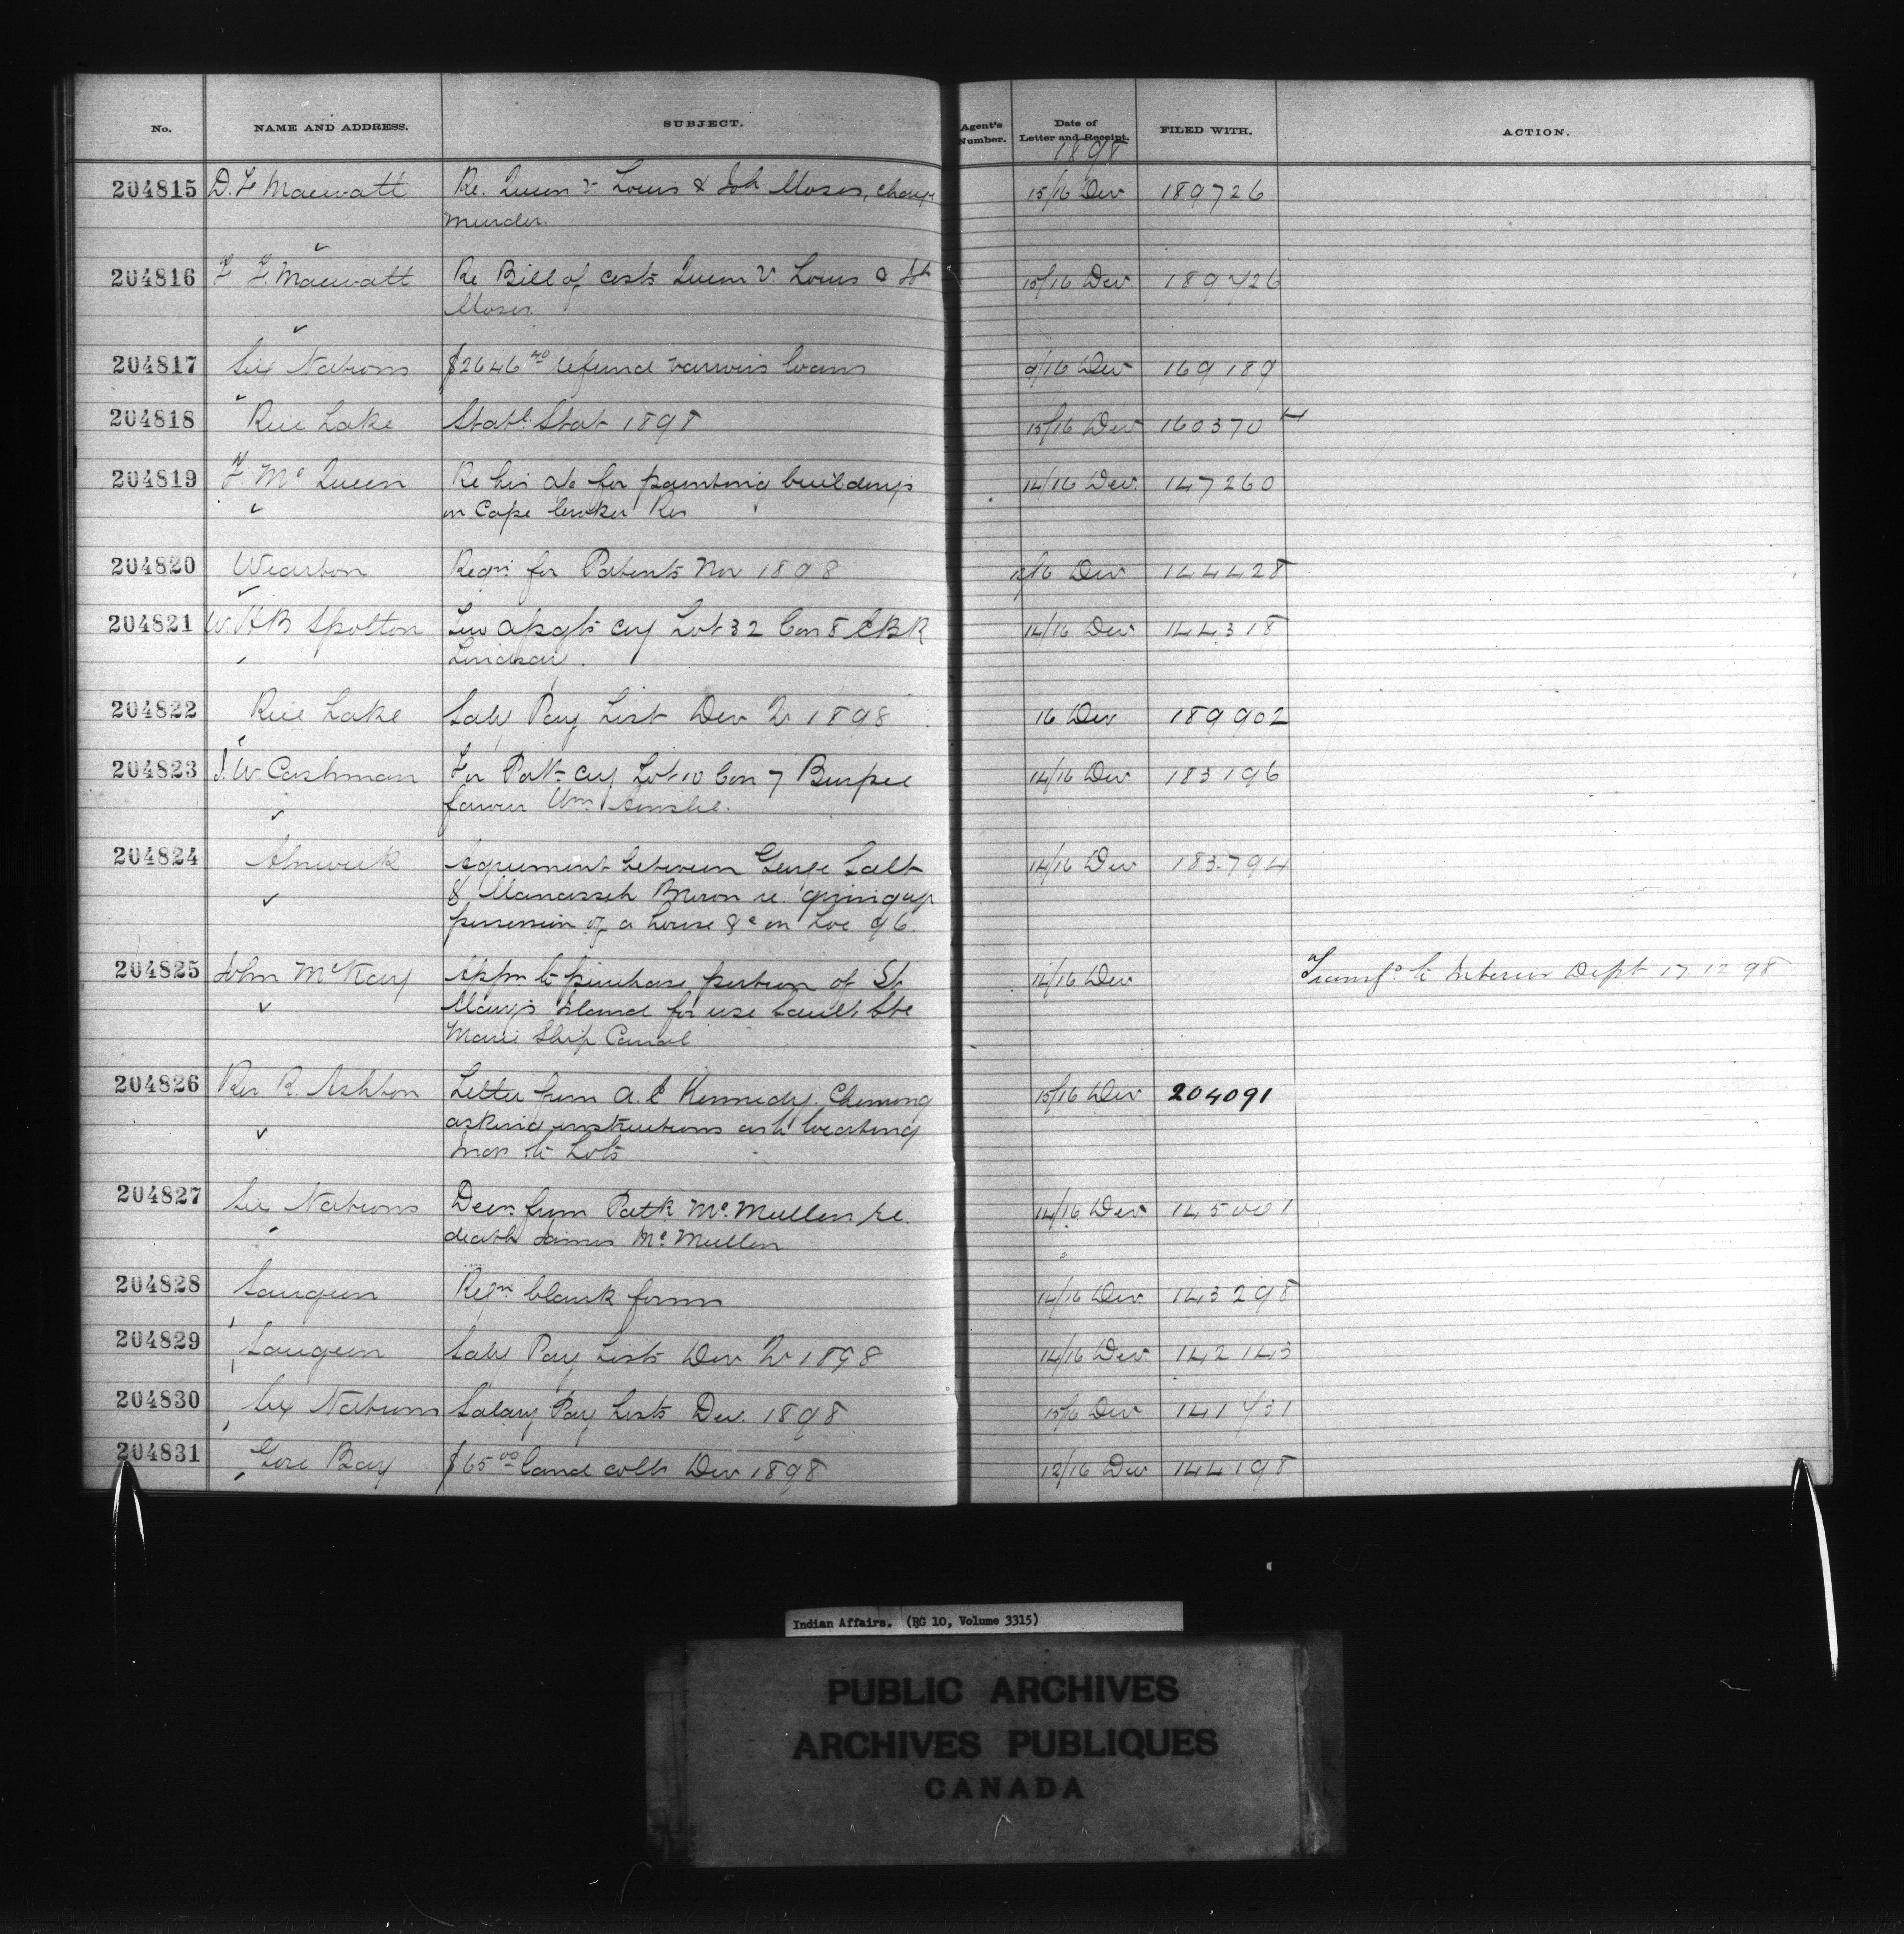 No. NAME AND ADDRESS. SUBJECT. Agent's Number. Date of Letter and Receipt. FILED WITH. ACTION.
1898
204815 D. F. Macwatt Re. Queen v Louis & Joh Moses, charge 15/16 Dec 189726
murder.
204816 F. F. Macwatt Re Bill of costs Queen v. Louis & Joh 15/16 Dec 189726
Moses.
204817 Six Nations $2646 40 refund various loans 9/16 Dec 169189
204818 Rice Lake Statl. Stat 1898 15/16 Dec 160370
204819 F. Mc Queen Re his a/c for painting buildings 14/16 Dec. 147260
on Cape Croker Res
204820 Wiarton Reqn. for Patents Nov 1898 /16 Dec 144428
204821 W. H B Spotton Lot 32 Con 8 EBR 14/16 Dec 144318
Lindsay.
204822 Rice Lake Saly Pay List Dec Qr 1898 16 Dec 189902
204823 J. W. Cashman For Patt. Lot 10 Con 7 Burpee 14/16 Dec 183196
favour Wm Ainslie.
204824 Alnwick Agreement between George Salt 14/16 Dec 183.794
& Manasseh re. giving up
possession of a house &c on Loc 96.
204825 John McKay Appn. to purchase portion of St 14/16 Dec Transfd to Interior Dept 17.12.98
Mary's Island for use Sault Ste
Marie Ship Canal
204826 Rev R. Ashton Letter from A. E Kennedy. Chemong 15/16 Dec 204091
asking instructions as to locating
men to Lots
204827 Six Nations Decn. from Patk Mc.Mullen re. 14/16 Dec 145001
death James Mc.Mullen
204828 Saugeen Reqn blank forms 14/16 Dec 143298
204829 Saugeen Saly Pay Lists Dec Qr 1898 14/16 Dec 142143
204830 Six Nations Salary Pay Lists Dec. 1898 15/16 Dec 141731
204831 Gore Bay $65 00 land colls Dec 1898 12/16 Dec 144198
Indian Affairs. (RG 10, Volume 3315)
PUBLIC ARCHIVES
ARCHIVES PUBLIQUES
CANADA